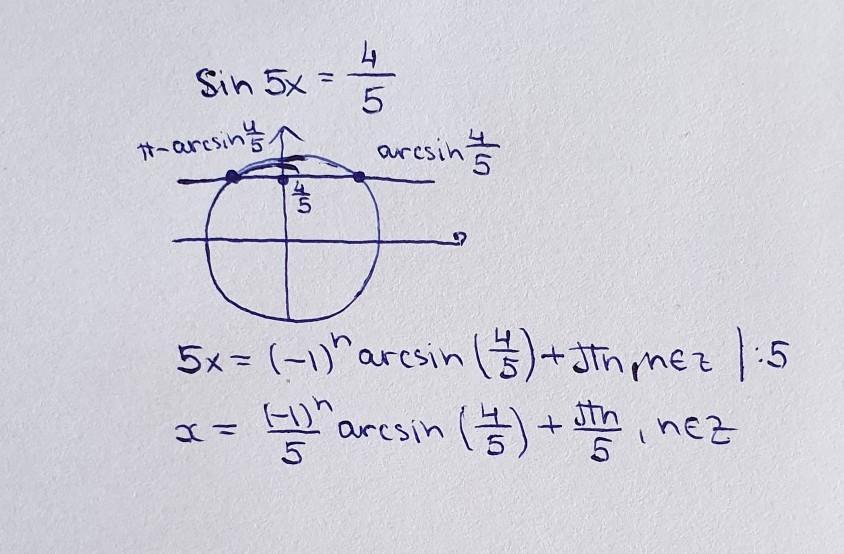 sin 5x = 4/5
π - arcsin 4/5
arcsin 4/5
4/5
5x = (-1)ⁿ arcsin (4/5) + πn, n∈z | :5
x = (-1)ⁿ/5 arcsin (4/5) + πn/5, n∈z